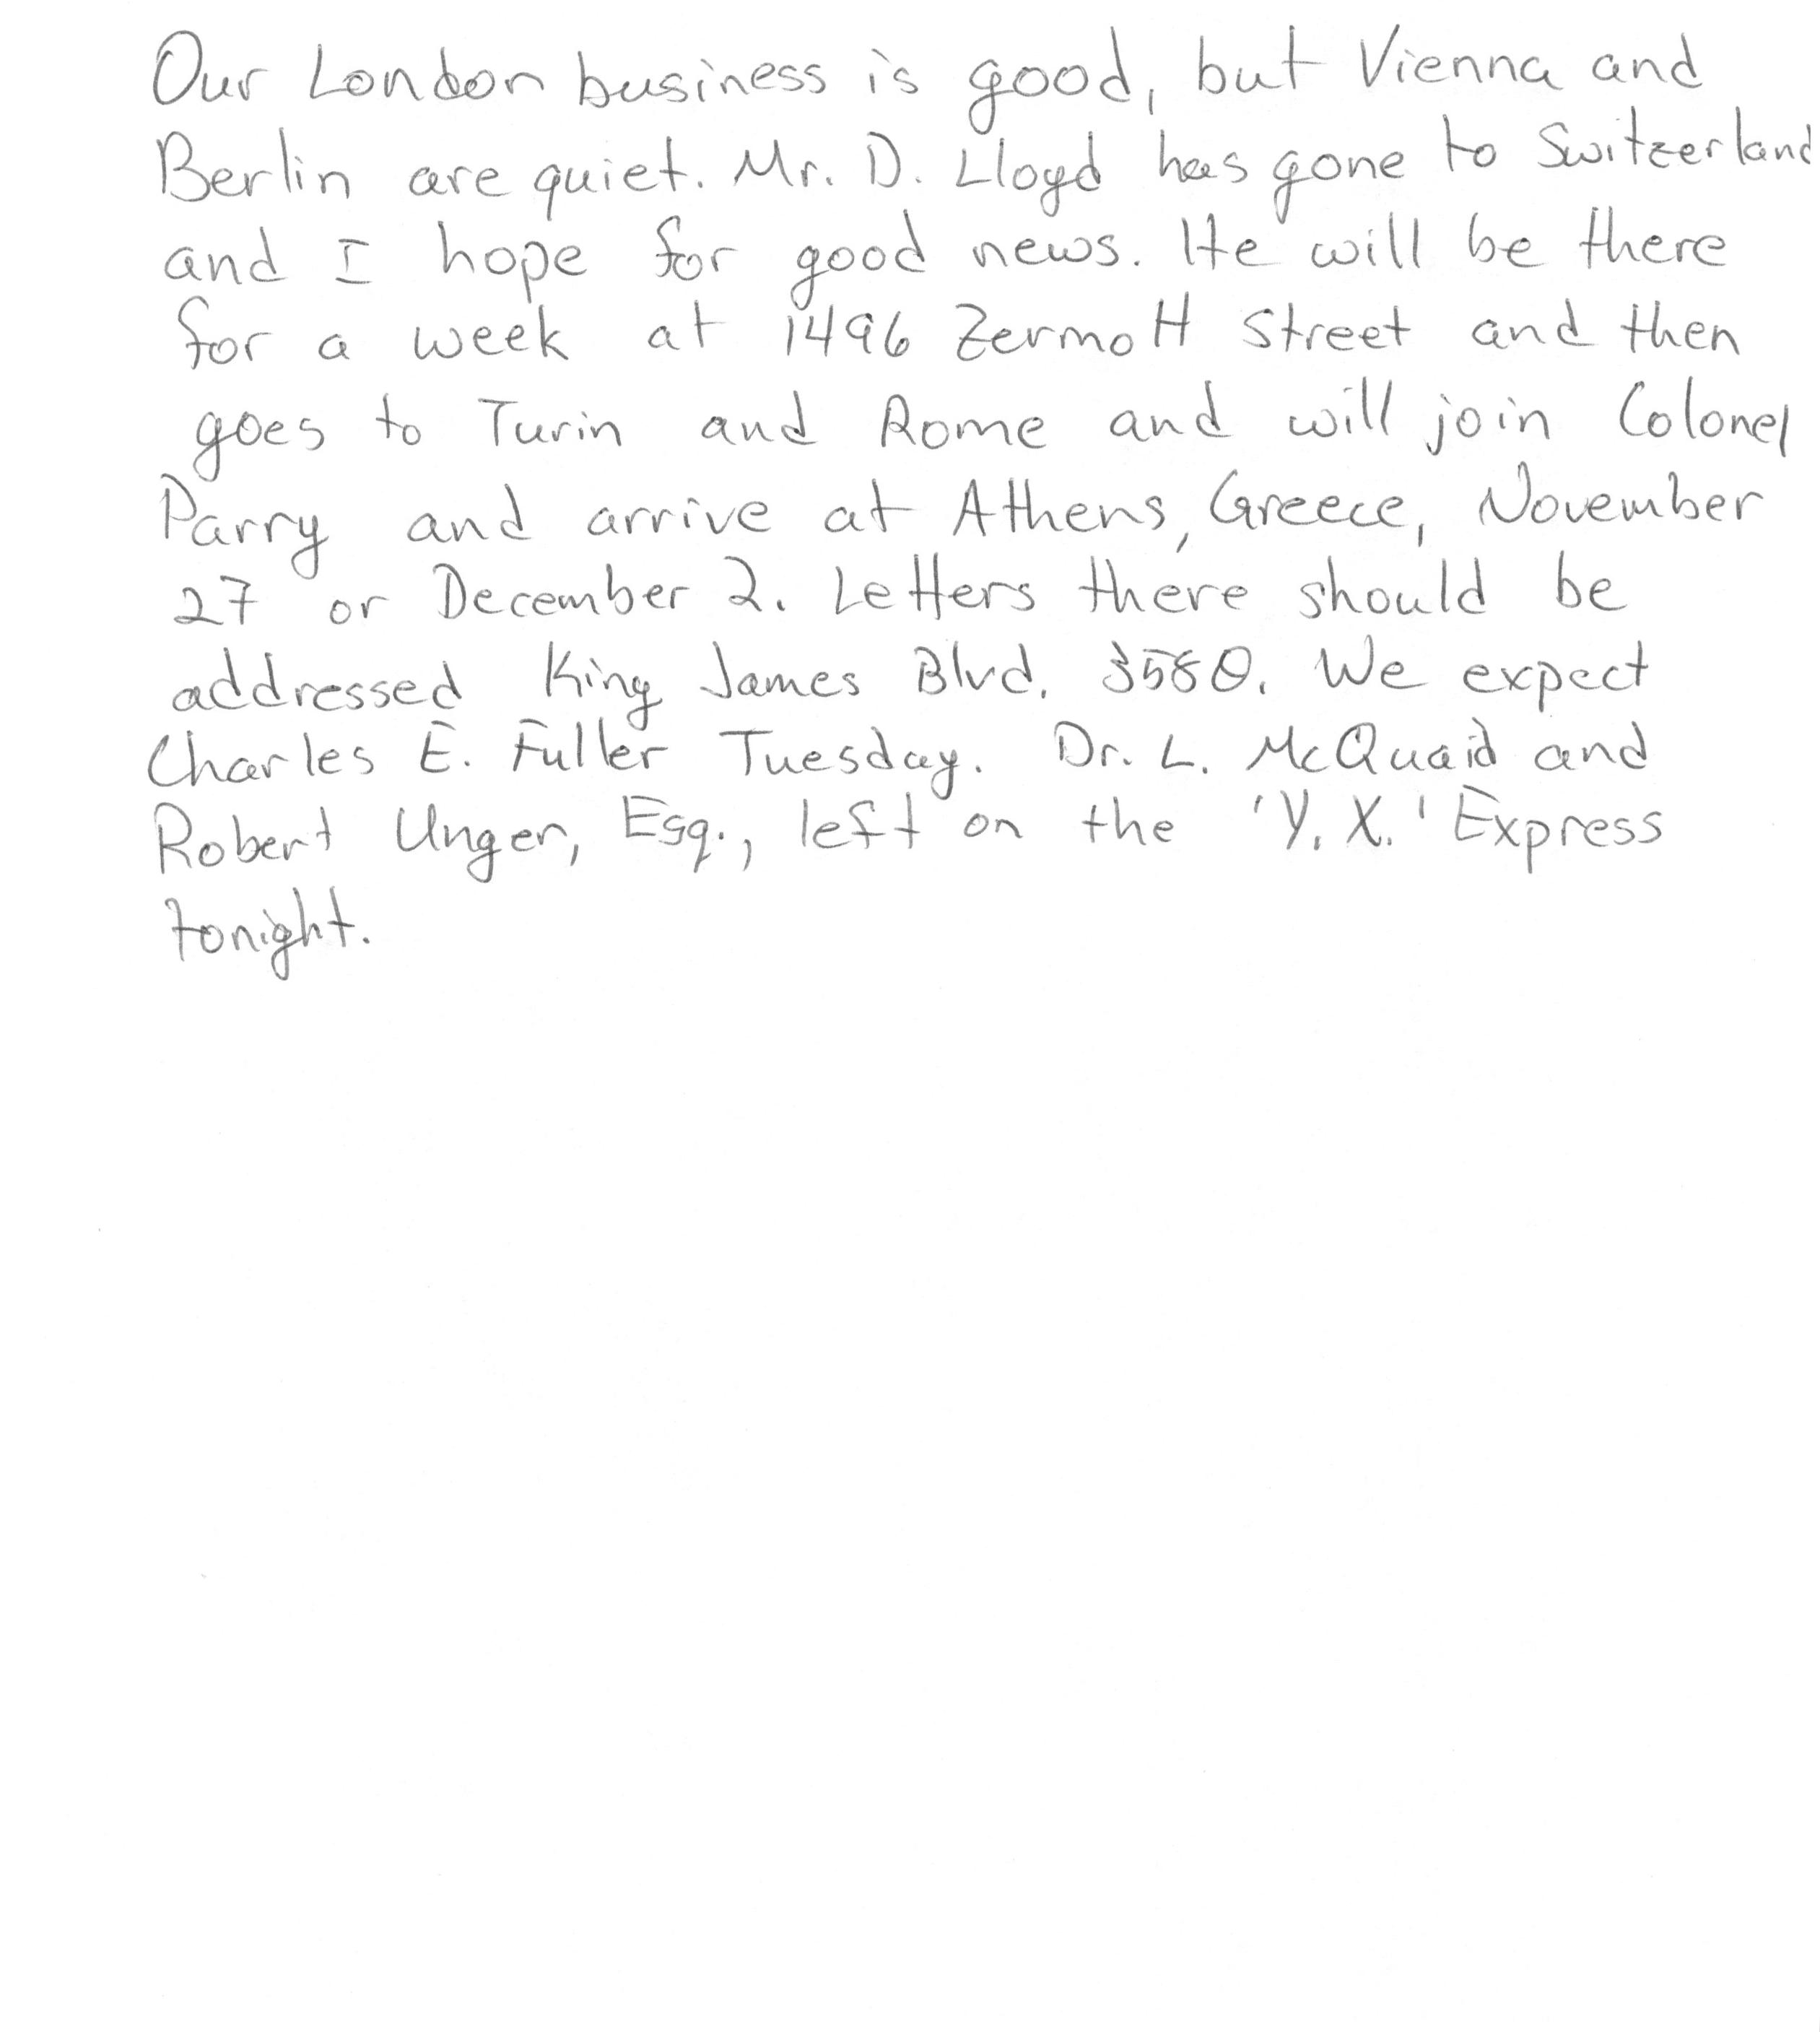 Our London business is good, but Vienna and
Berlin are quiet. Mr. D. Lloyd has gone to Switzerland
and I hope for good news. He will be there
for a week at 1496 Zermott Street and then
goes to Turin and Rome and will join Colonel
Parry and arrive at Athens, Greece, November
27 or December 2. Letters there should be
addressed King James Blvd. 3580. We expect
Charles E. Fuller Tuesday. Dr. L. McQuaid and
Robert Unger, Esq., left on the 'Y. X.' Express
tonight.